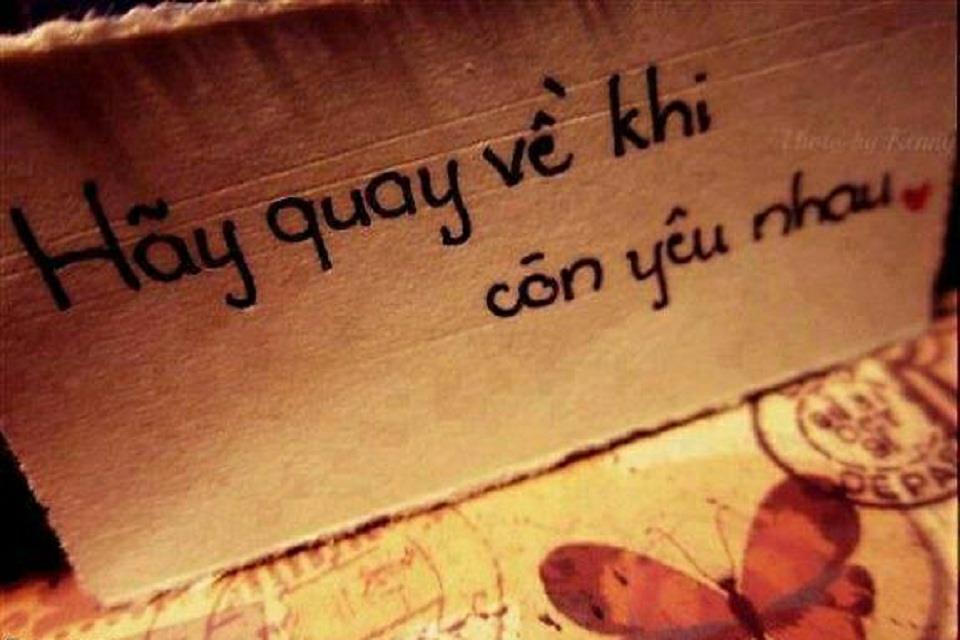 Hãy quay về khi
còn yêu nhau
Photo by Kenny
DÉPA